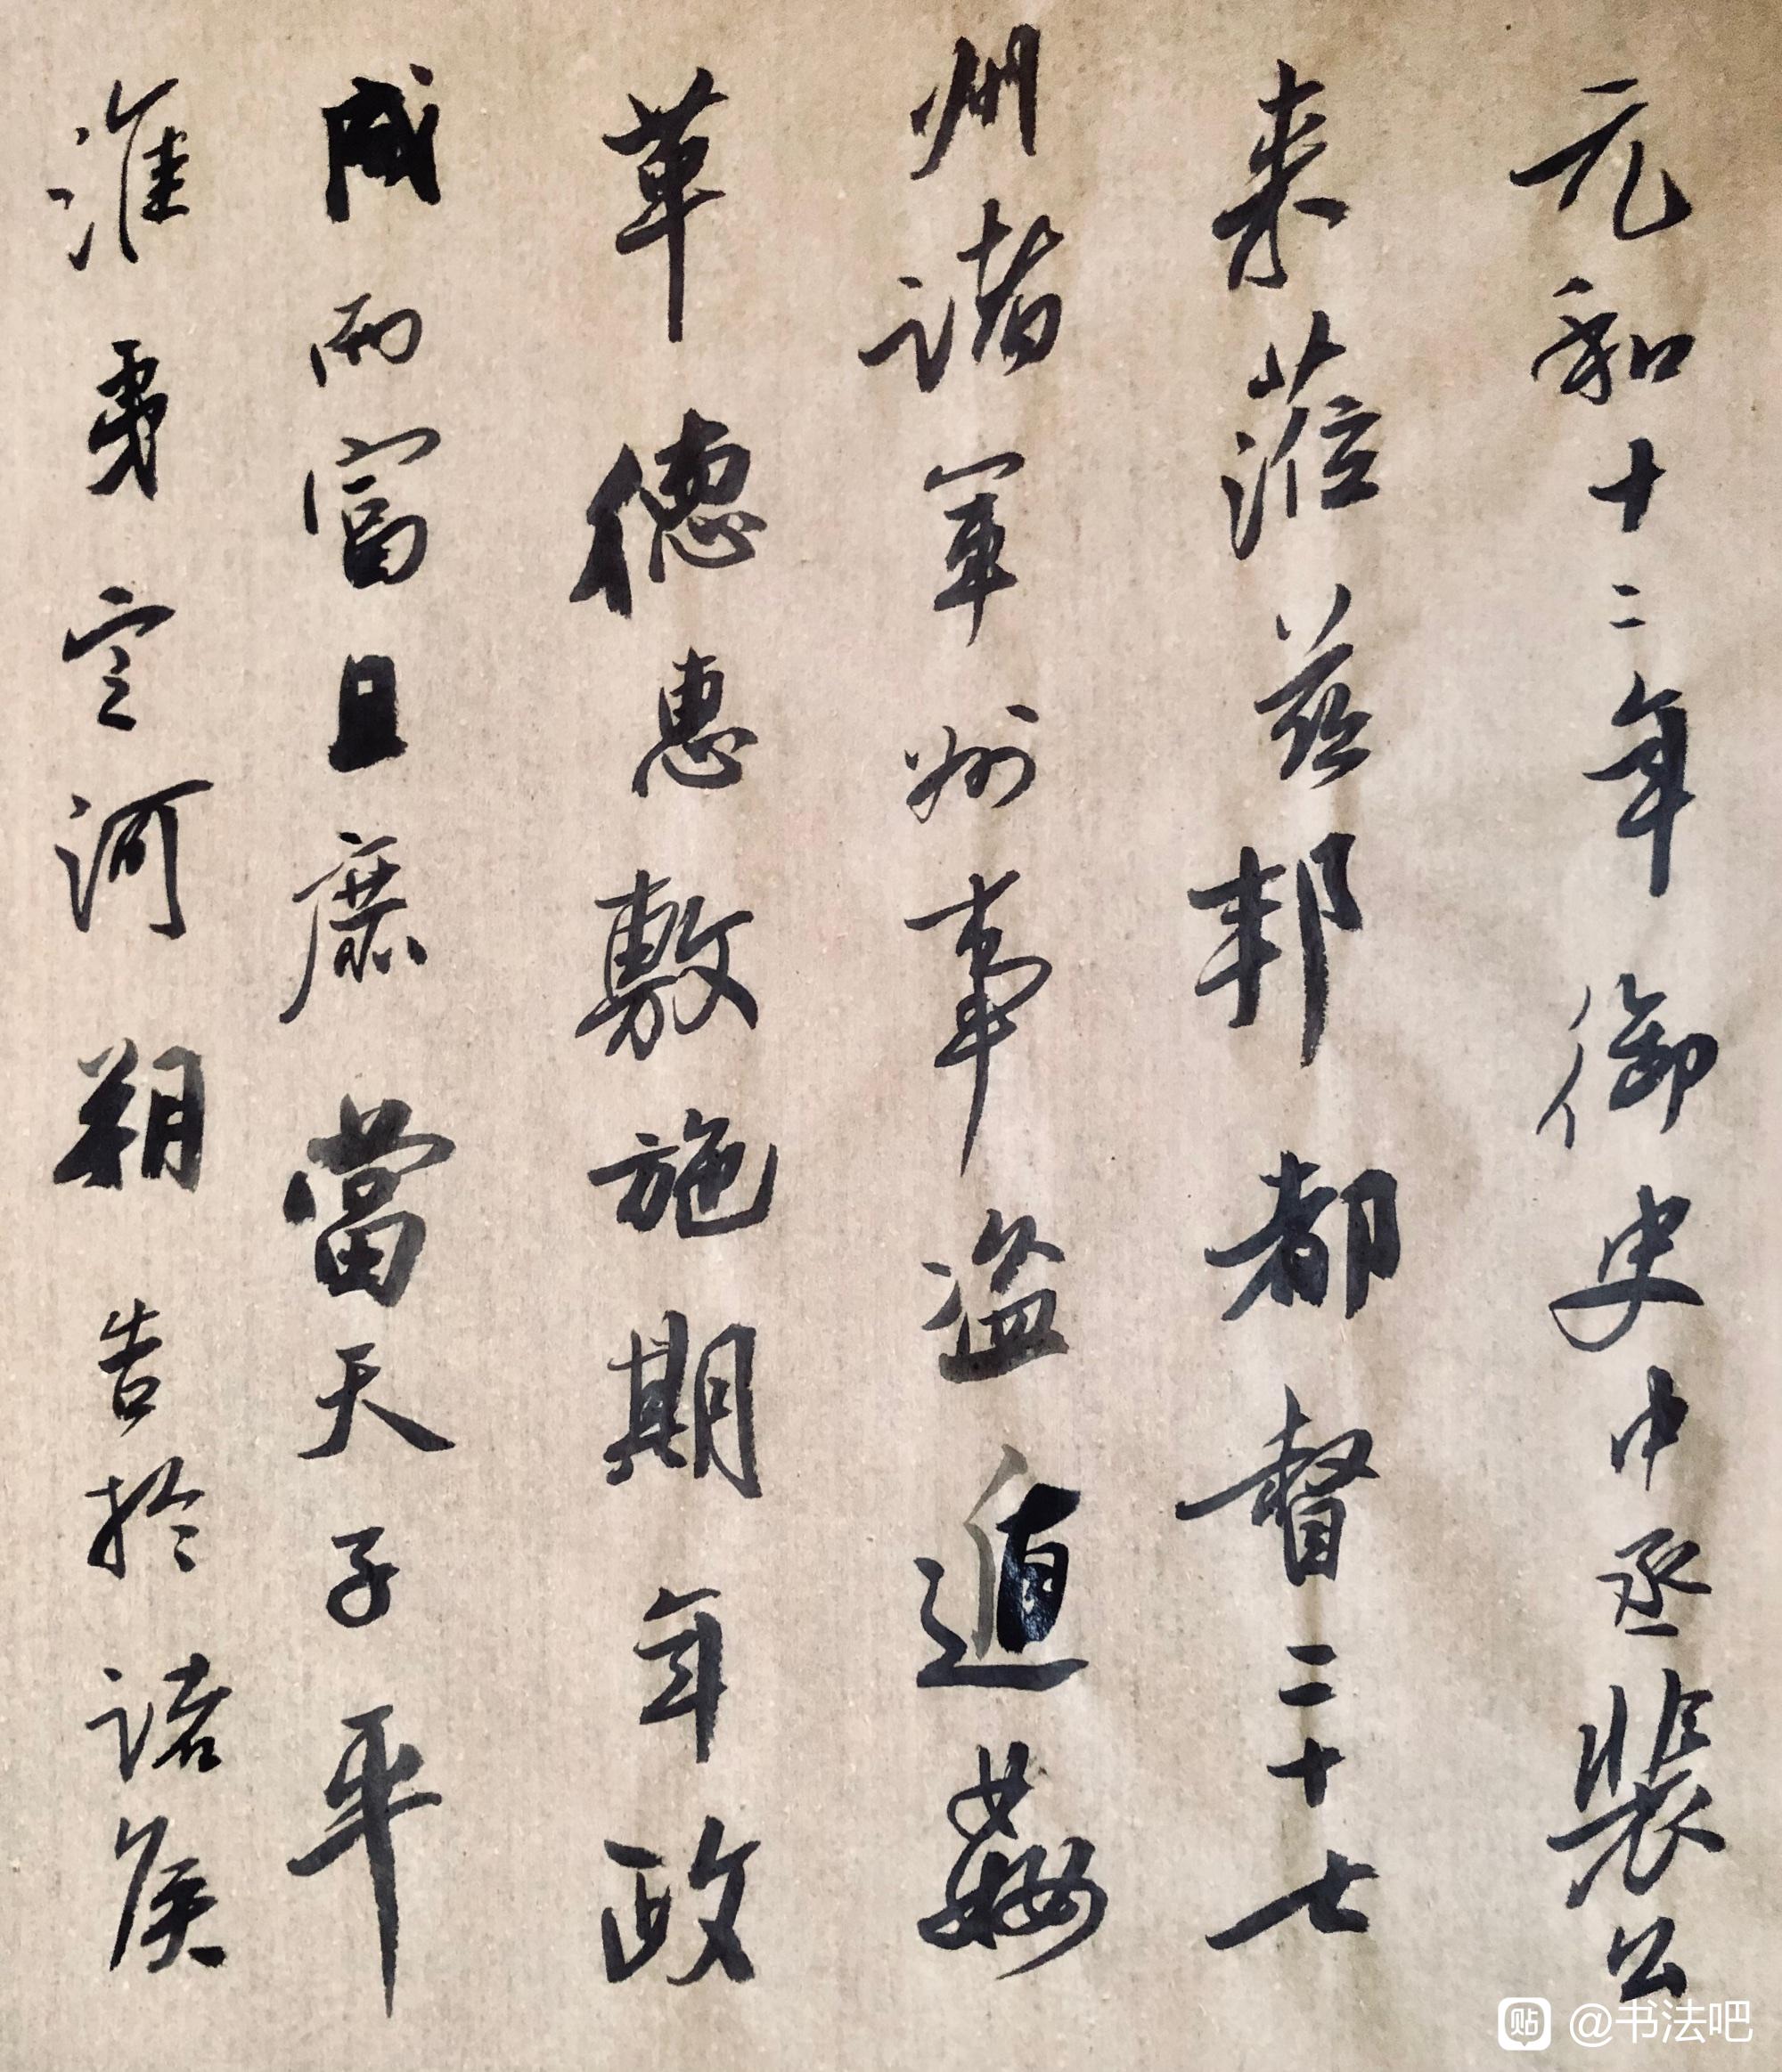 元和十二年御史中丞裴公
来蒞兹邦都督二十七
州諸軍州事盗遁姦
革德惠敷施期年政
成而富且庶當天子平
淮夷定河朔告於諸侯
贴 @书法吧